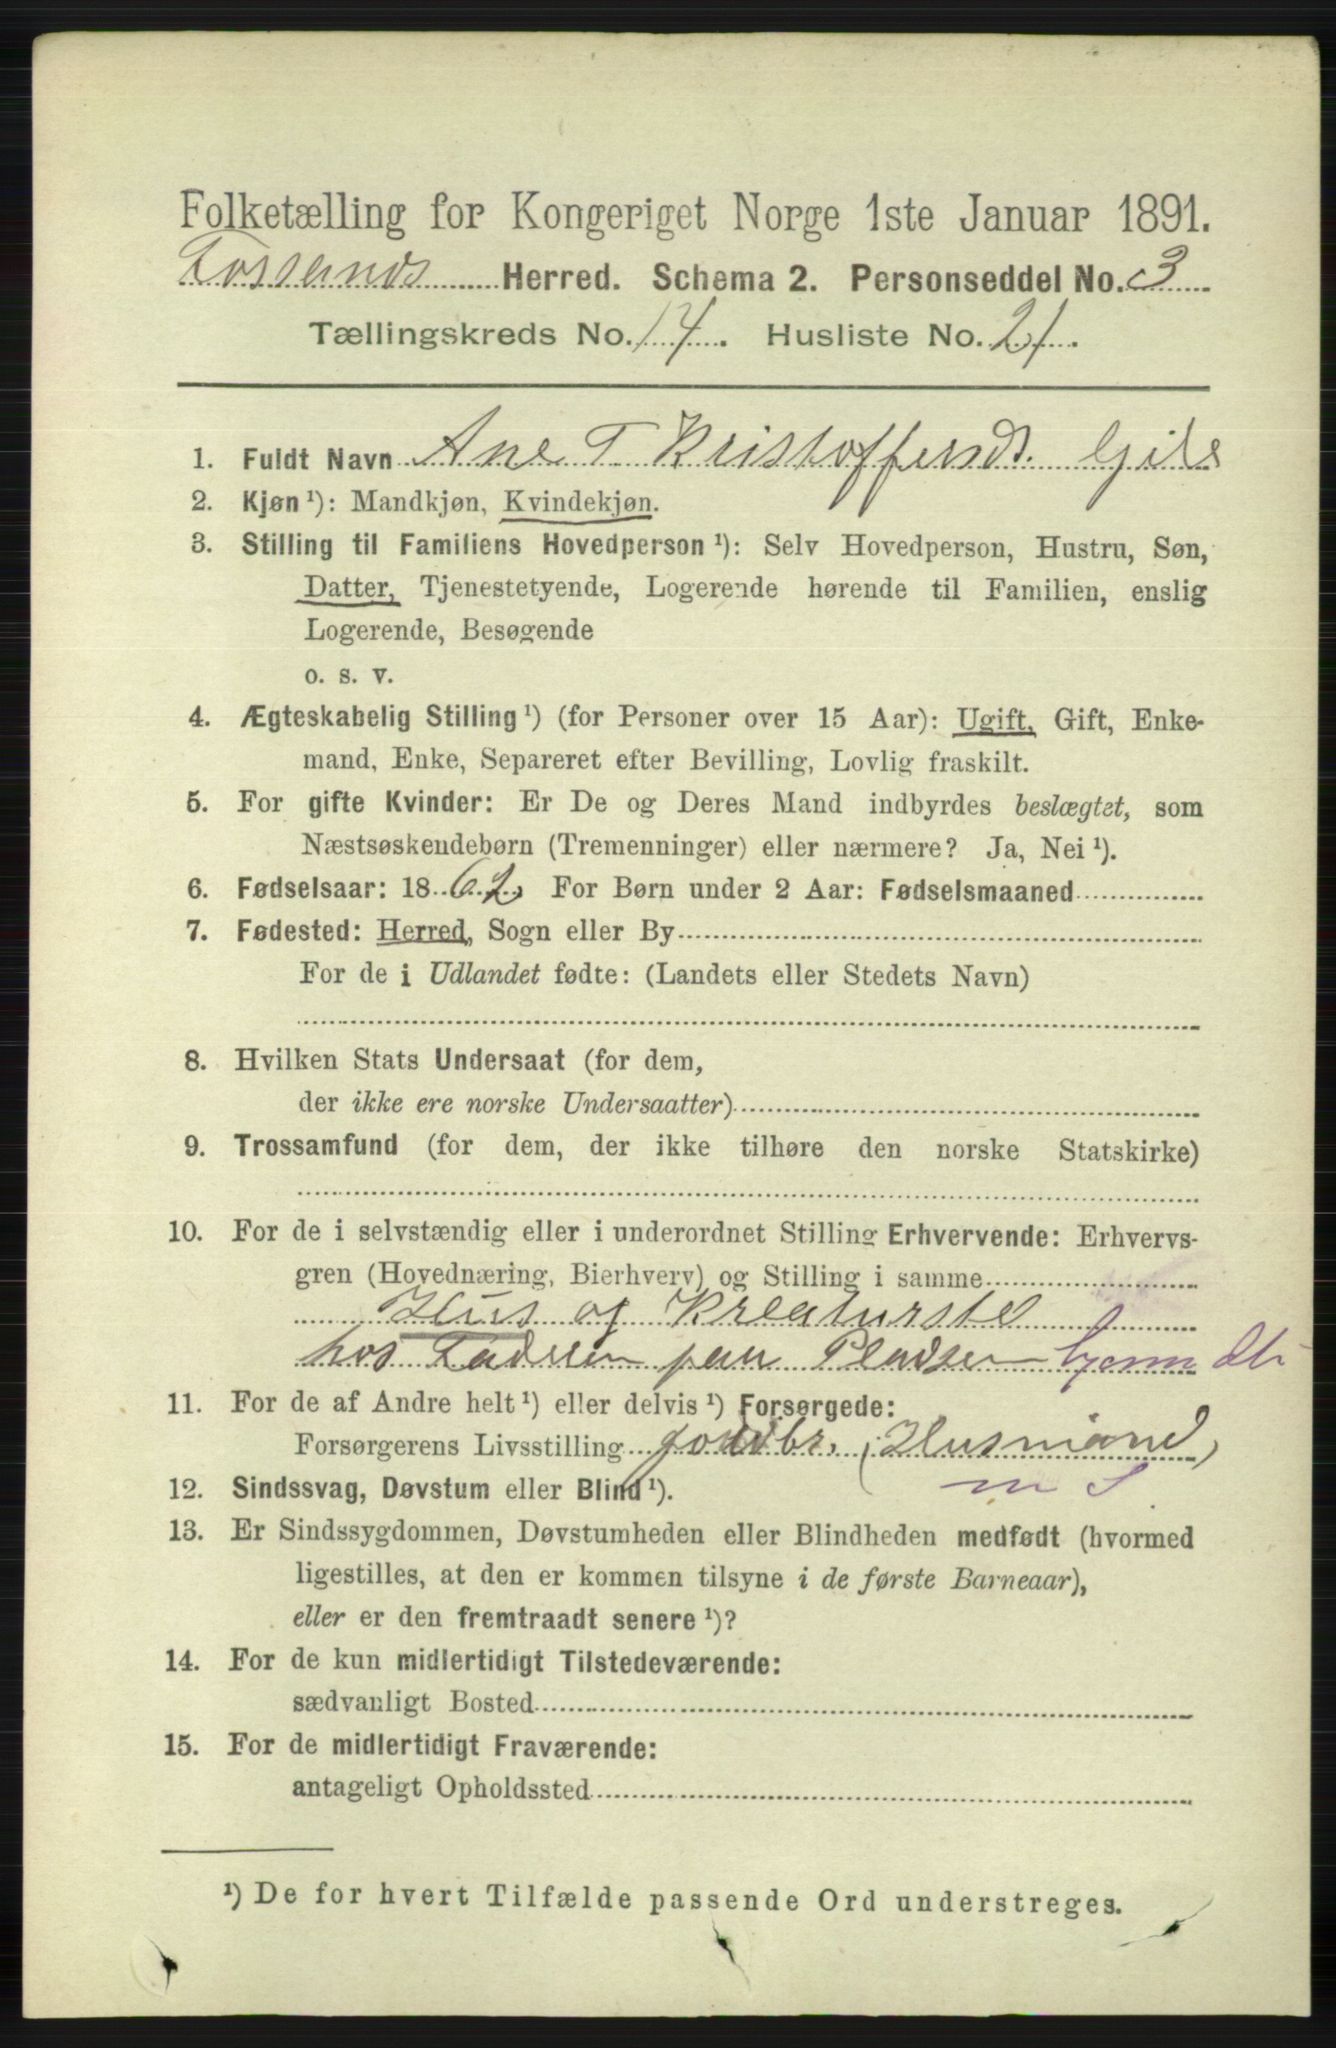 Folketælling for Kongeriget Norge 1ste Januar 1891.
Fossands Herred. Schema 2. Personseddel No. 3
Tællingskreds No. 14. Husliste No. 21.
1. Fuldt Navn Ane T Kristoffersd.
2. Kjøn ¹): Mandkjøn, Kvindekjøn.
3. Stilling til Familiens Hovedperson ¹): Selv Hovedperson, Hustru, Søn,
Datter, Tjenestetyende, Logerende hørende til Familien, enslig
Logerende, Besøgende
o. s. v.
4. Ægteskabelig Stilling ¹) (for Personer over 15 Aar): Ugift, Gift, Enke-
mand, Enke, Separeret efter Bevilling, Lovlig fraskilt.
5. For gifte Kvinder: Er De og Deres Mand indbyrdes beslægtet, som
Næstsøskendebørn (Tremenninger) eller nærmere? Ja, Nei ¹).
6. Fødselsaar: 1862. For Børn under 2 Aar: Fødselsmaaned
7. Fødested: Herred, Sogn eller By
For de i Udlandet fødte: (Landets eller Stedets Navn)
8. Hvilken Stats Undersaat (for dem,
der ikke ere norske Undersaatter)
9. Trossamfund (for dem, der ikke tilhøre den norske Statskirke)
10. For de i selvstændig eller i underordnet Stilling Erhvervende: Erhvervs-
gren (Hovednæring, Bierhverv) og Stilling i samme
Hus og Kreaturstel
hos Faderen paa Pladsen
11. For de af Andre helt ¹) eller delvis ¹) Forsørgede:
Forsørgerens Livsstilling jordbr. (Husmand)
m S
12. Sindssvag, Døvstum eller Blind ¹).
13. Er Sindssygdommen, Døvstumheden eller Blindheden medfødt (hvormed
ligestilles, at den er kommen tilsyne i de første Barneaar),
eller er den fremtraadt senere ¹)?
14. For de kun midlertidigt Tilstedeværende:
sædvanligt Bosted
15. For de midlertidigt Fraværende:
antageligt Opholdssted
¹) De for hvert Tilfælde passende Ord understreges.